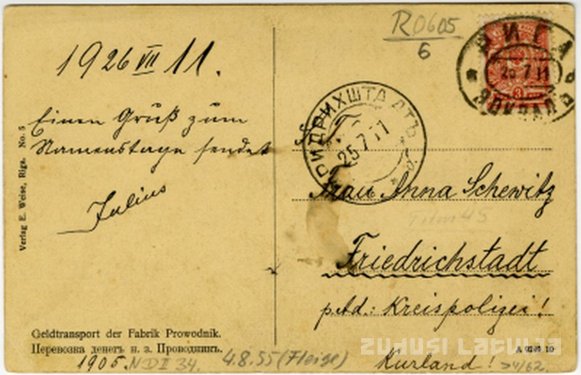 R0605
6
РИГА
25 7 11
ВОКЗАЛЪ
1926 VII 11.
Einen Gruß zum
Namenstage sendet
Julius
ФРИДРИХШТАДТЪ
25.7.11
Frau Anna Schewitz
Friedrichstadt
p. Ad.: Kreispolizei!
Kurland!
Verlag E. Weise, Riga. No. 5
Geldtransport der Fabrik Prowodnik.
Перевозка денегъ н. з. Проводникъ.
1905.
N D II 34.
4.8.55 (Fleige)
ZUDUSI LATVIJA